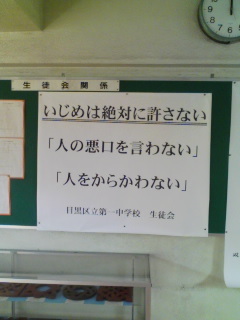 生徒会関係
いじめは絶対に許さない
「人の悪口を言わない」
「人をからかわない」
目黒区立第一中学校 生徒会